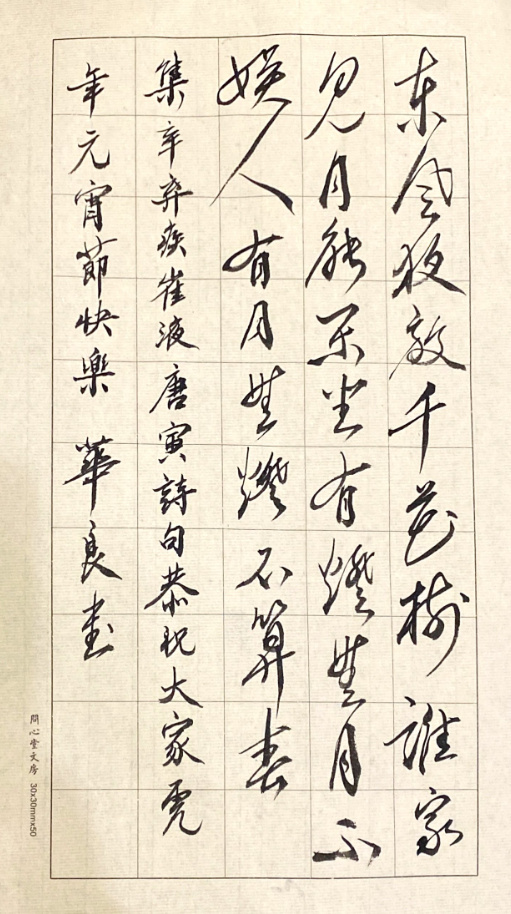 東風夜放千花樹誰家
見月能閒坐有燈無月不
娛人有月無燈不算春
集辛弃疾崔液唐寅詩句恭祝大家虎
年元宵節快樂 華良書
問心堂文房 30x30mmx50